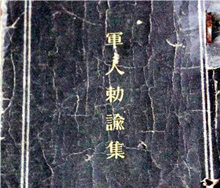 軍人勅諭集